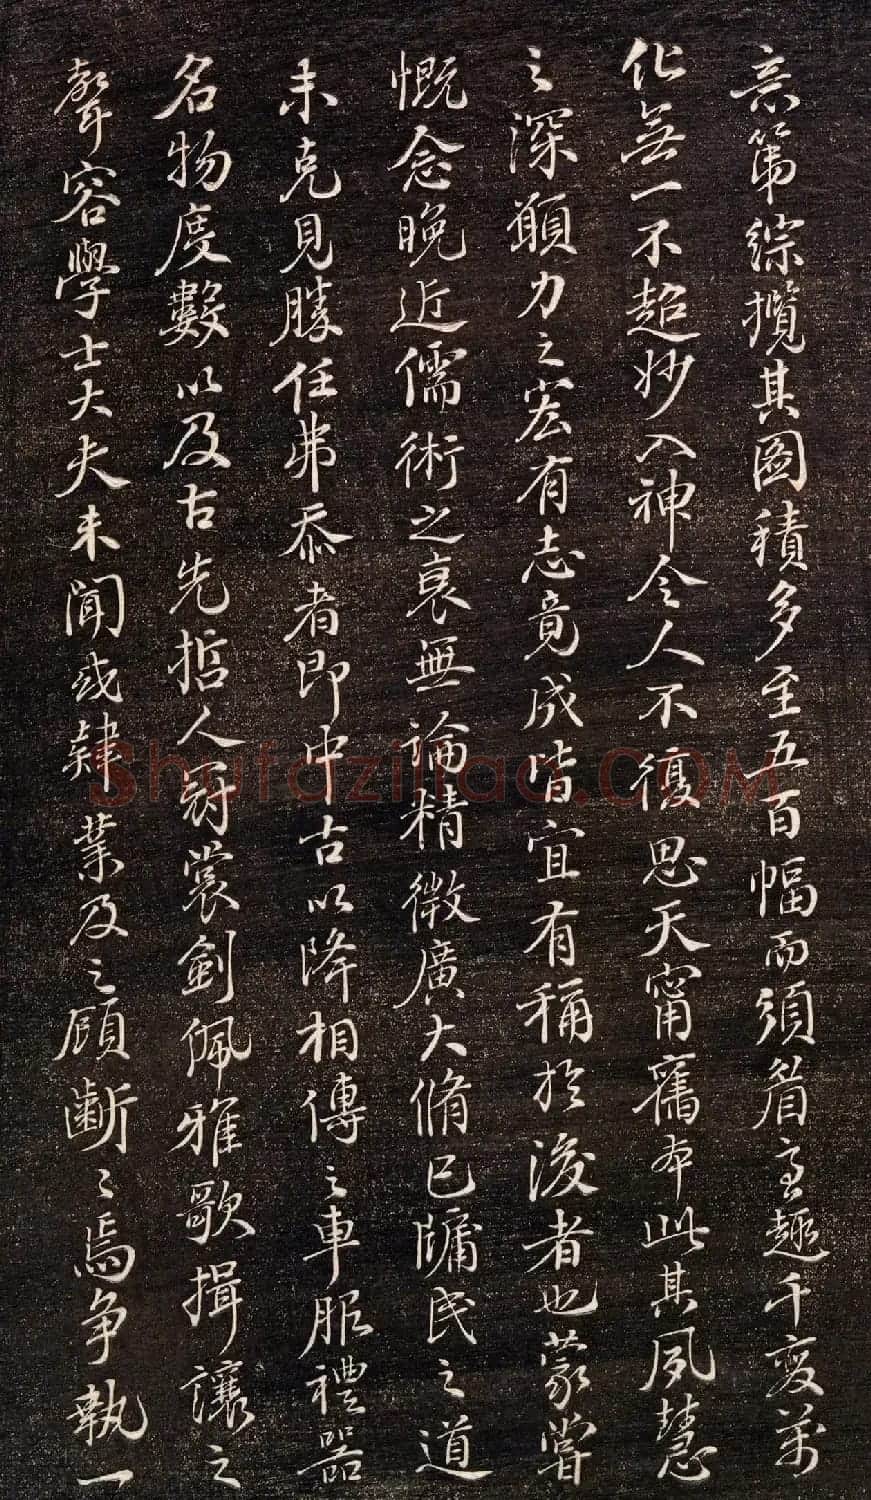 亲第綜攬其圖積多至五百幅而須眉意趣千變萬
化無一不超妙入神令人不復思天甯舊本此其夙慧
之深願力之宏有志竟成皆宜有稱於後者也蒙嘗
慨念晚近儒術之衰無論精微廣大脩己牖民之道
未克見勝任弗忝者即中古以降相傳之車服禮器
名物度數以及古先哲人冠裳劍佩雅歌揖讓之
聲容學士大夫未聞或肄業及之顧斷斷焉爭執一
Shufaziliao.COM